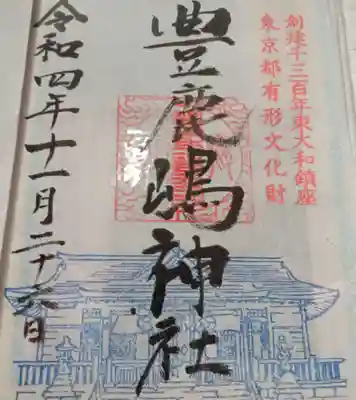 創建千三百年東大和鎮座
東京都有形文化財
豊鹿嶋神社
令和四年十一月二十六日